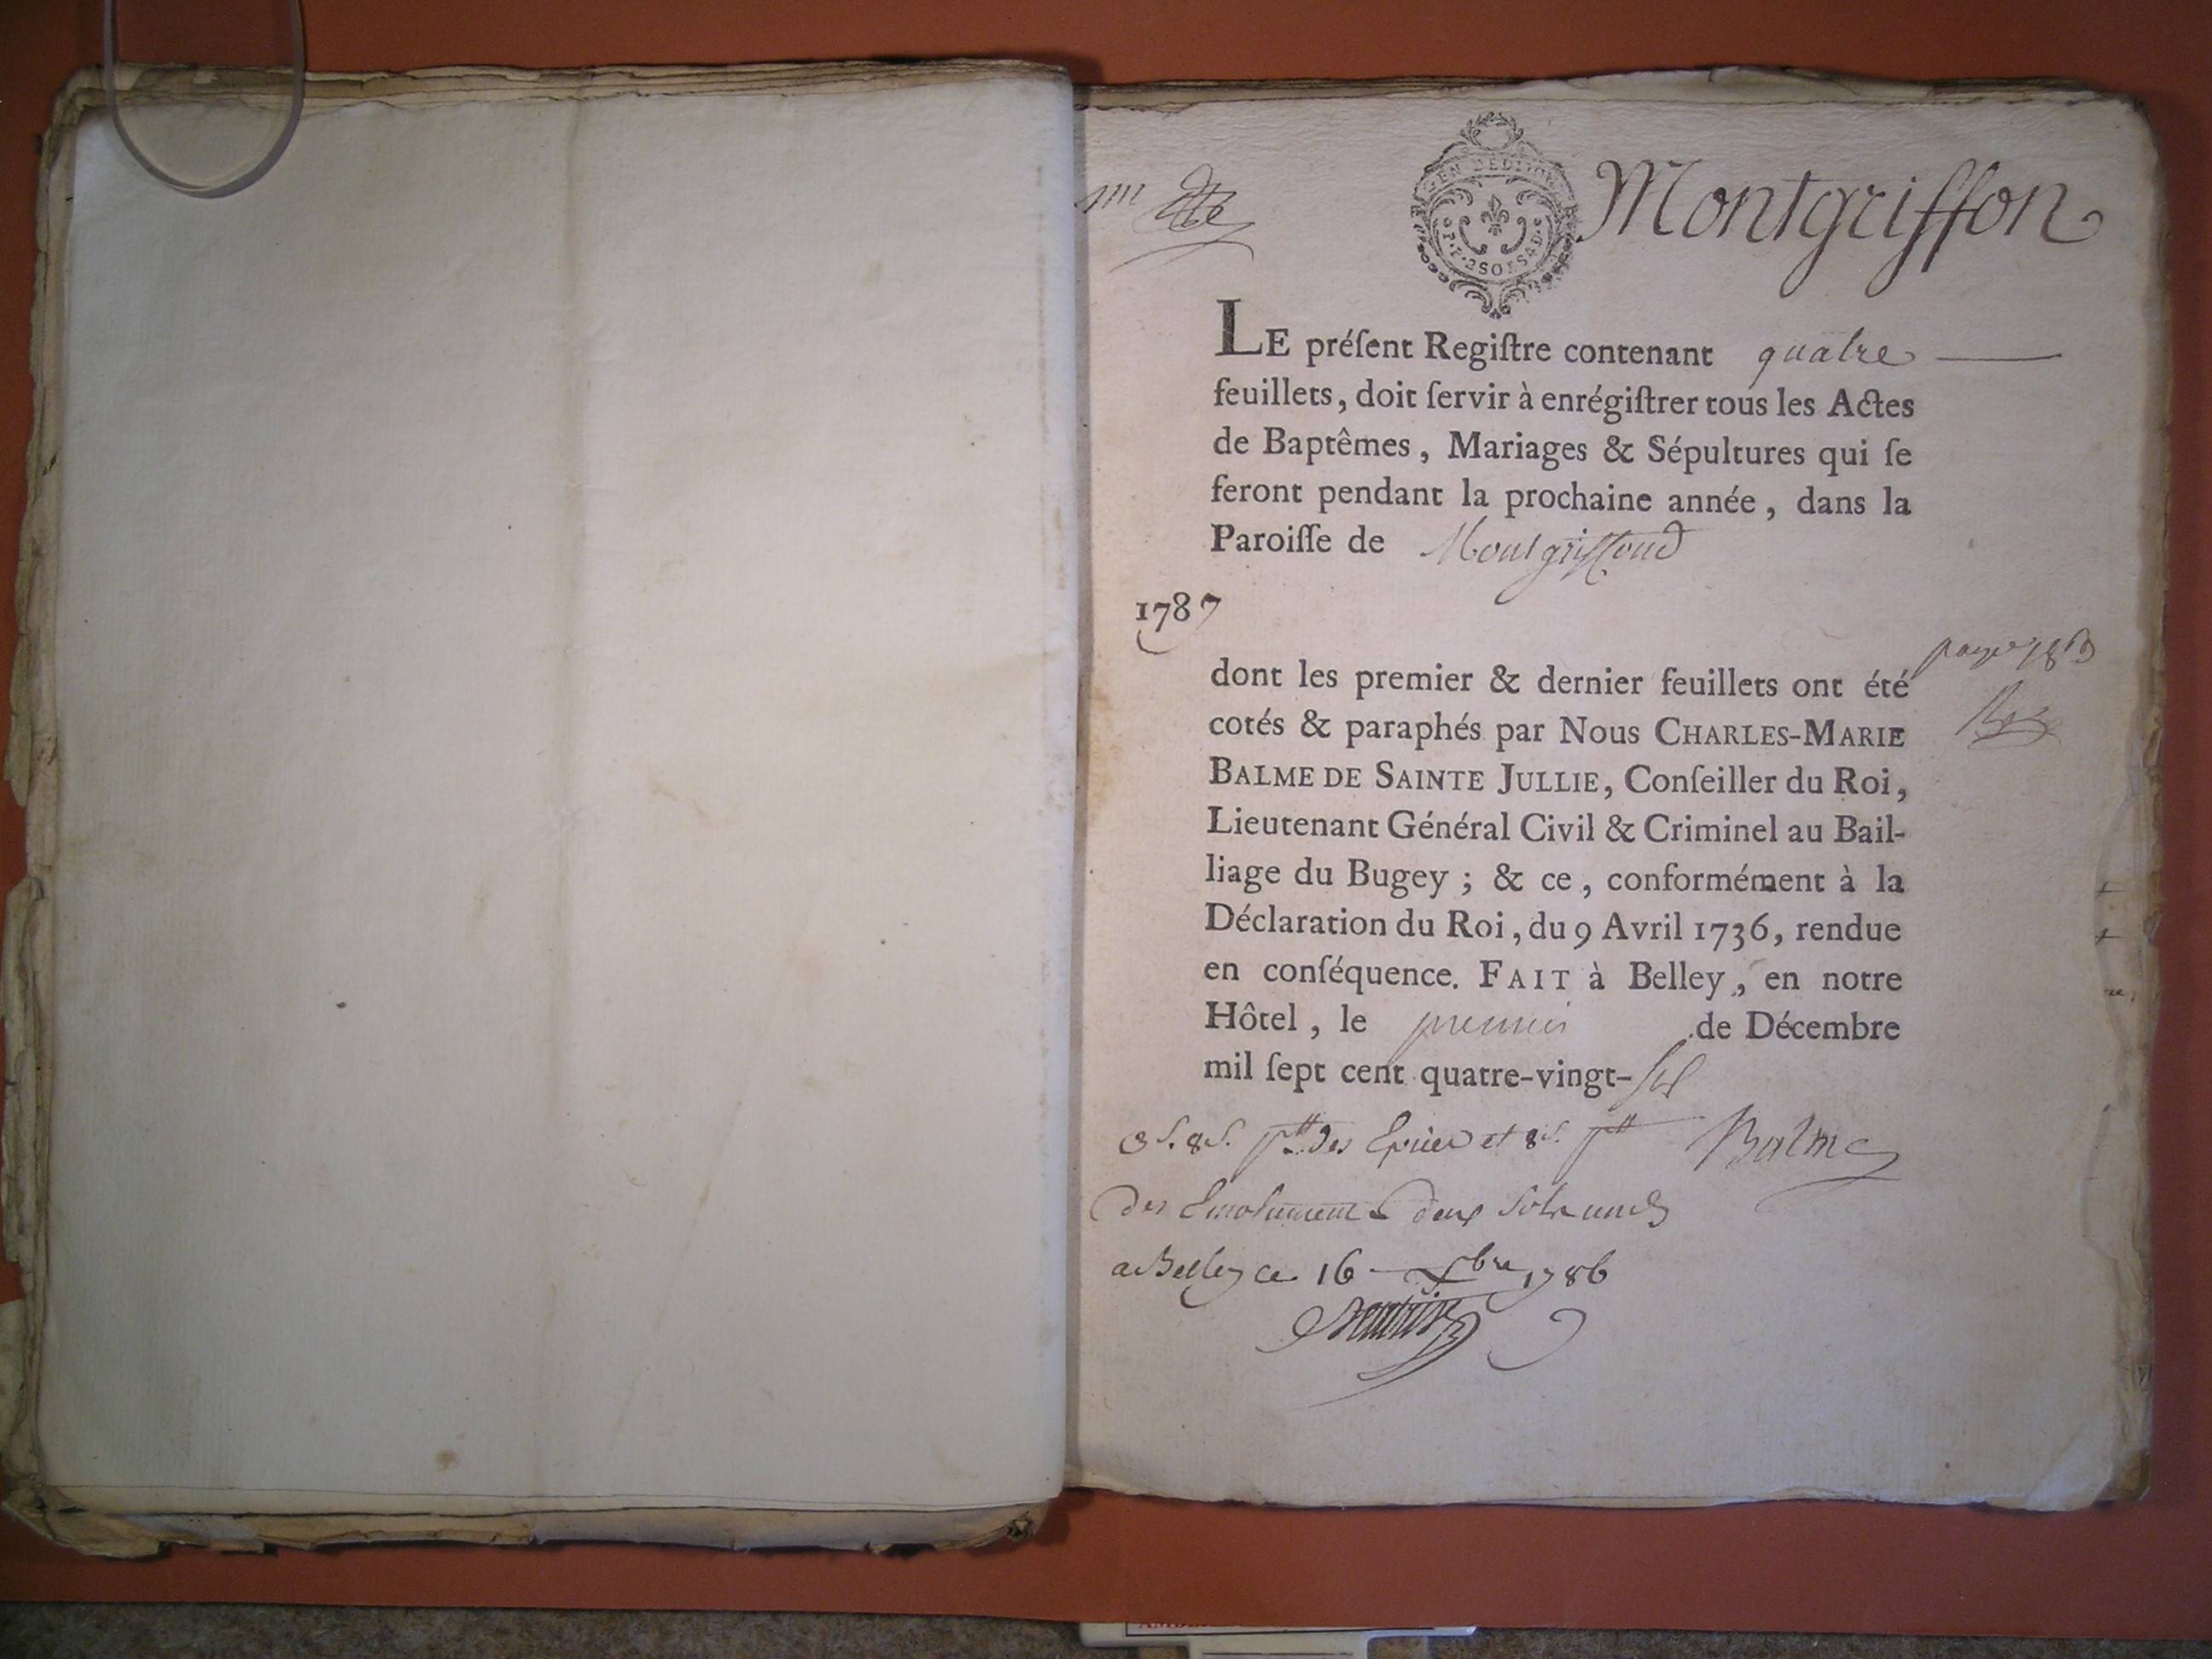 Montgriffon
GEN DE DIJON
2 SOLS 4 D.
LE préſent Regiſtre contenant quatre
feuillets, doit ſervir à enrégiſtrer tous les Actes
de Baptêmes, Mariages & Sépultures qui ſe
feront pendant la prochaine année, dans la
Paroiſſe de Montgriffond
1787
dont les premier & dernier feuillets ont été
cotés & paraphés par Nous CHARLES-MARIE
BALME DE SAINTE JULLIE, Conſeiller du Roi,
Lieutenant Général Civil & Criminel au Bail-
liage du Bugey ; & ce, conformément à la
Déclaration du Roi, du 9 Avril 1736, rendue
en conſéquence. FAIT à Belley, en notre
Hôtel, le premier de Décembre
mil ſept cent quatre-vingt-six
8 s. ptt des Epices et 8 s. ptt Balme
des Emoluments deux sols
a Belley ce 16 Xbre 1786